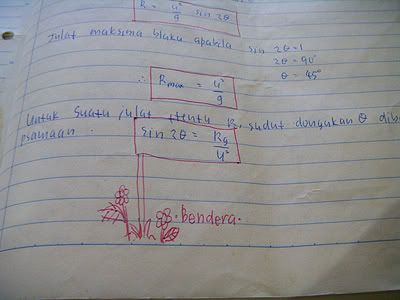 R = u²/g sin 2θ
Julat maksima blaku apabila sin 2θ = 1
2θ = 90°
θ = 45°
∴ Rmax = u²/g
Untuk suatu julat ttentu R, sudut dongakan θ dib
psamaan.
sin 2θ = Rg/u²
• bendera •